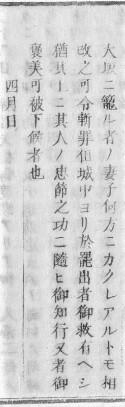 大垣ニ籠ル者ノ妻子何方ニカクレアルトモ相
改之可令斬罪但城中ヨリ於罷出者御救有ヘシ
猶其上ニ其人ノ忠節之功ニ隨ヒ御知行又者御
褒美可被下候者也
四月日